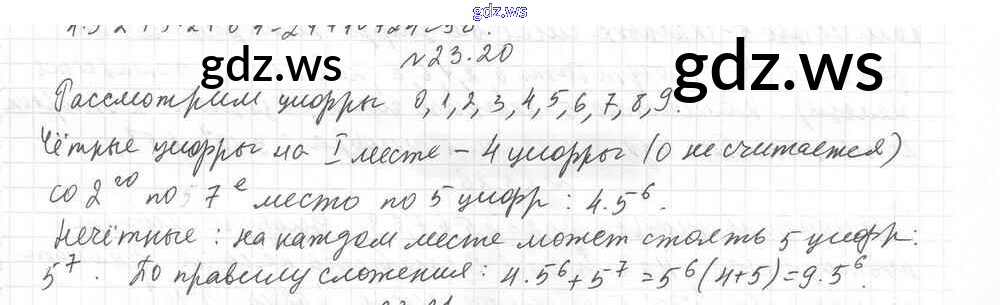 gdz.ws
№23.20
gdz.ws gdz.ws
Рассмотрим цифры 0,1,2,3,4,5,6,7,8,9.
Чётные цифры на I месте – 4 цифры (0 не считается)
со 2го по 7е место по 5 цифр: 4·5⁶.
Нечётные: на каждом месте может стоять 5 цифр:
5⁷. По правилу сложения: 4·5⁶+5⁷=5⁶(4+5)=9·5⁶.